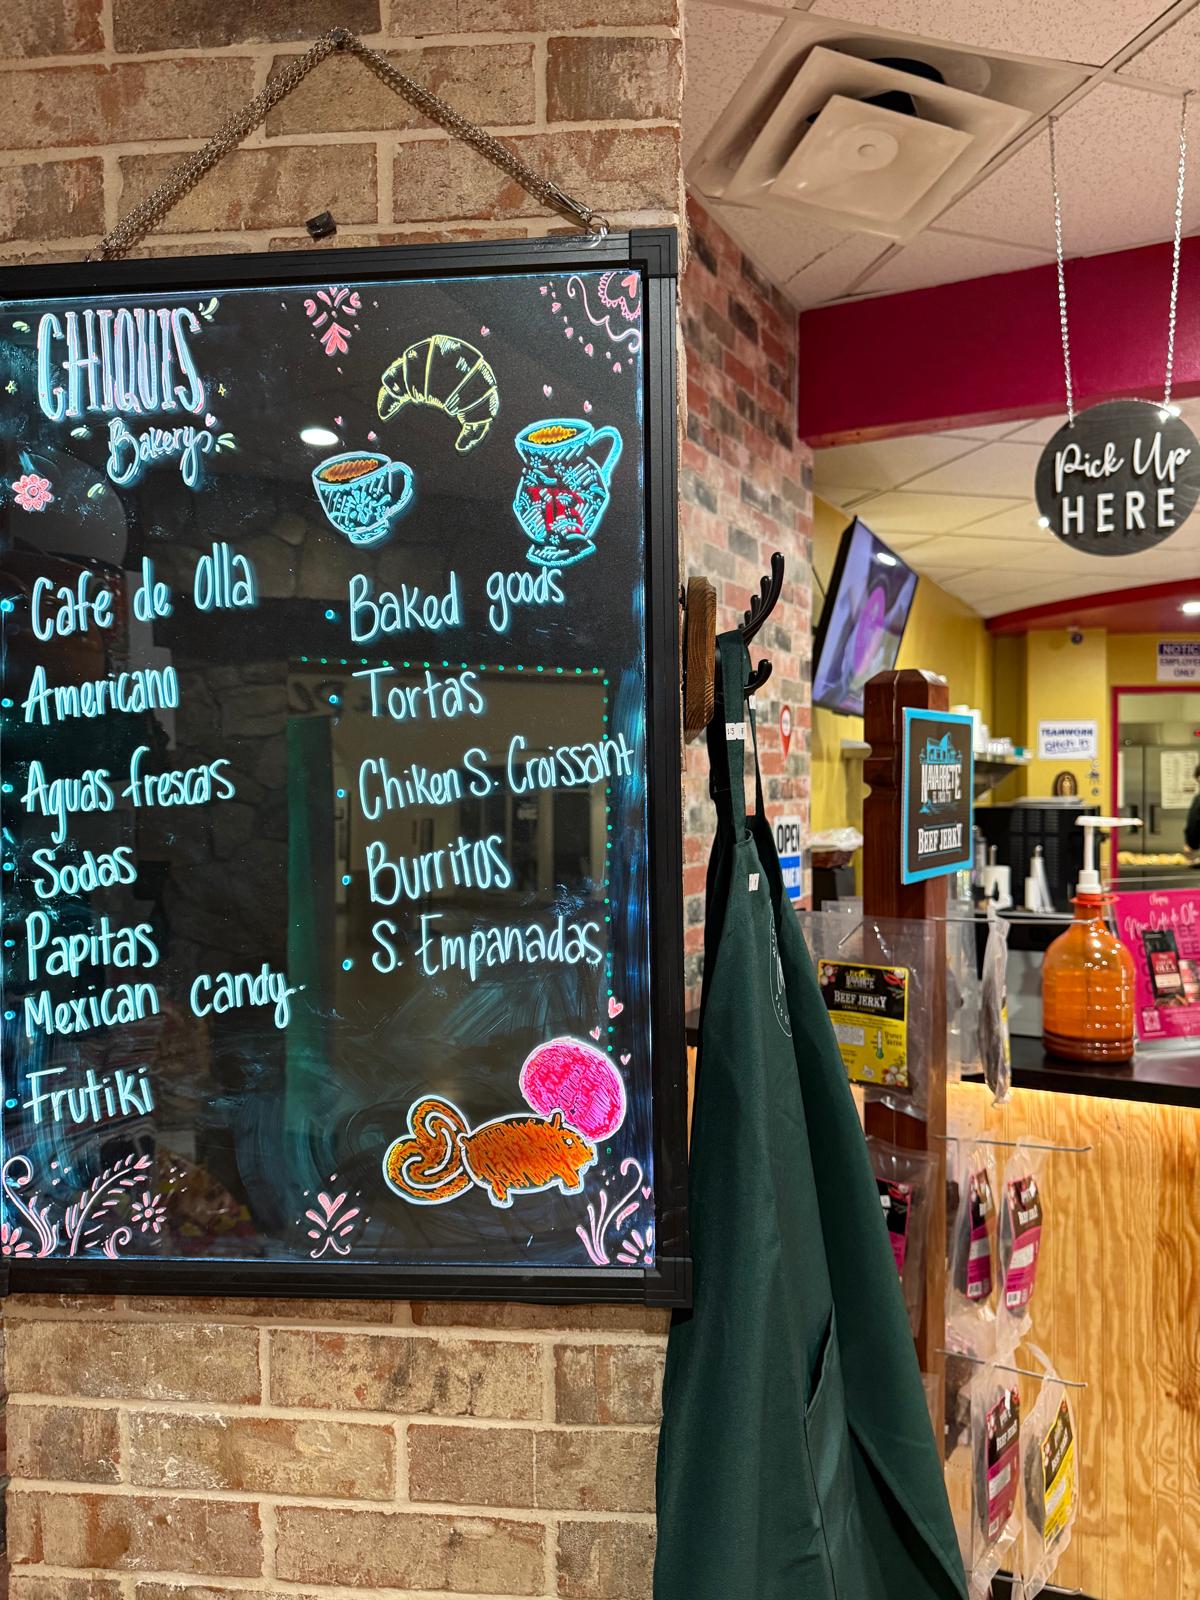 CHIQUIS
Bakery
Cafe de olla
Americano
Aguas frescas
Sodas
Papitas
Mexican candy
Frutiki
Baked goods
Tortas
Chiken S. Croissant
Burritos
S. Empanadas
Pick Up
HERE
NOTICE
EMPLOYEE
ONLY
TEAMWORK
pitch in
NAVARRETE
BEEF JERKY
OPEN
BEEF JERKY
BEEF JERKY